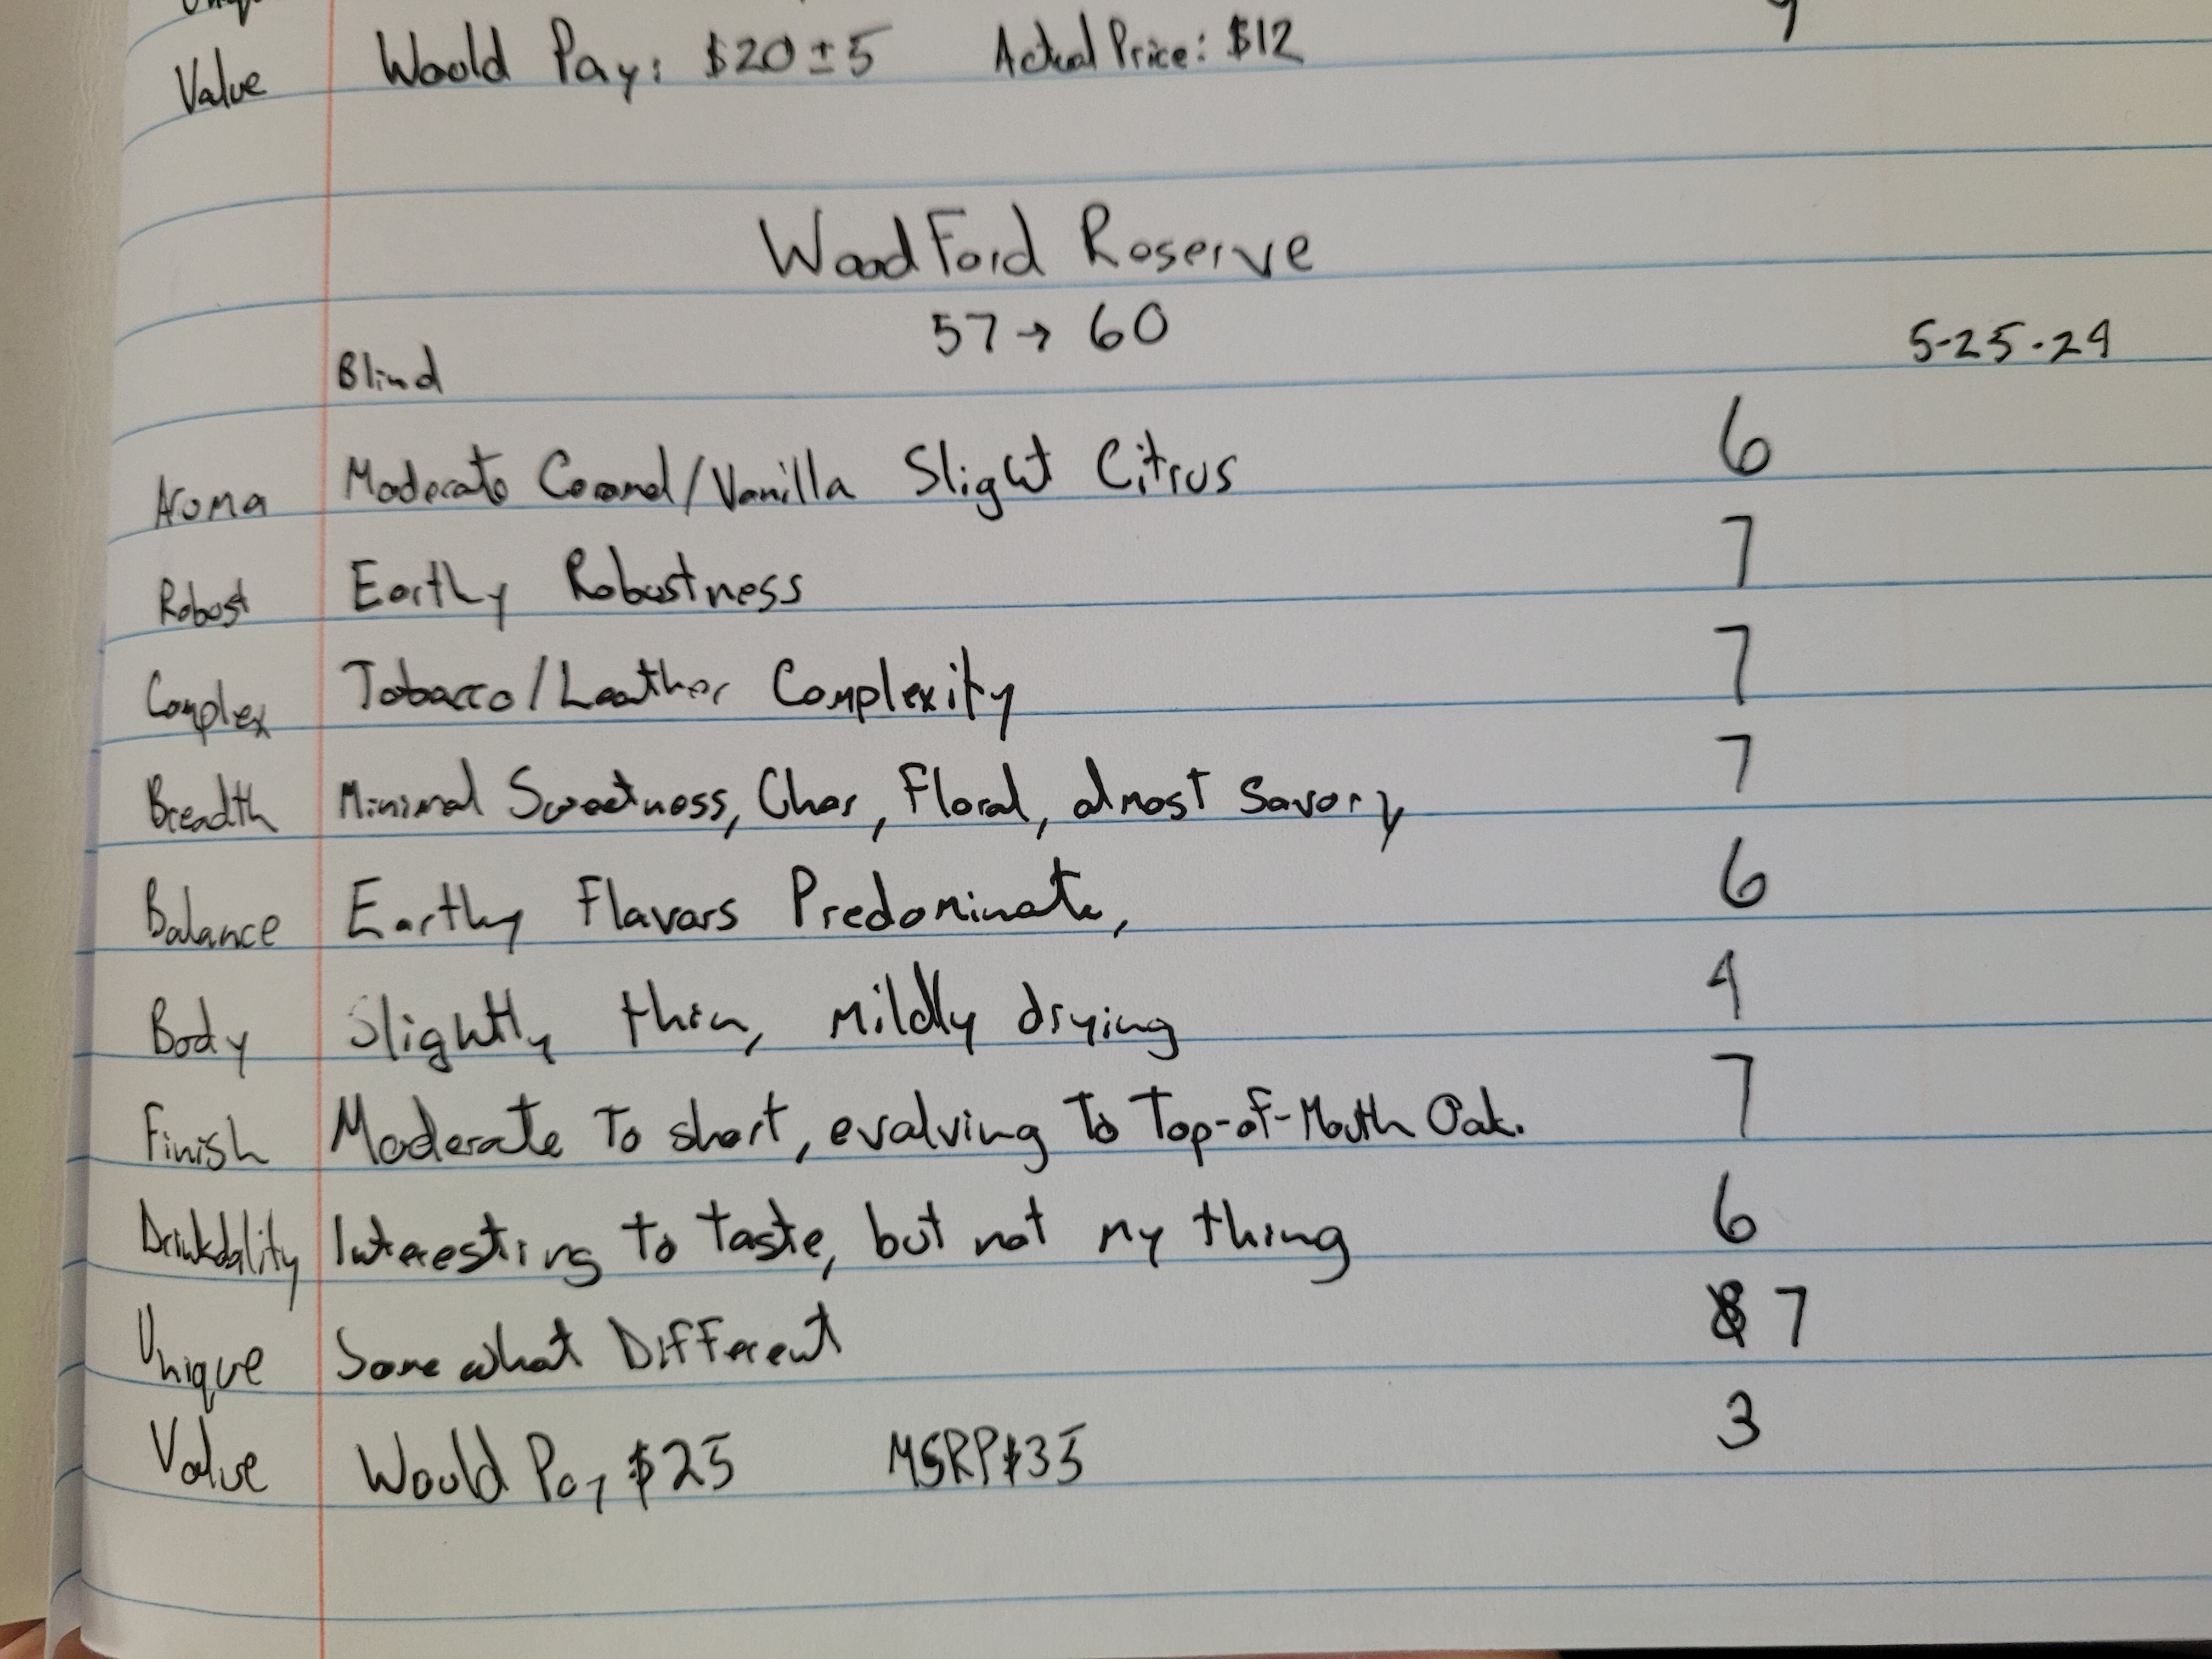 Value Would Pay: $20±5 Actual Price: $12
WoodFord Reserve
57→60
Blind 5-25-24
Aroma Moderate Caramel/Vanilla Slight Citrus 6
Robust Earthy Robustness 7
Complex Tobacco/Leather Complexity 7
Breadth Minimal Sweetness, Char, Floral, almost Savory 7
Balance Earthy Flavors Predominate, 6
Body Slightly thin, mildly drying 4
Finish Moderate To short, evolving To Top-of-Mouth Oak. 7
Drinkability Interesting to taste, but not my thing 6
Unique Somewhat Different 7
Value Would Pay $25 MSRP $35 3